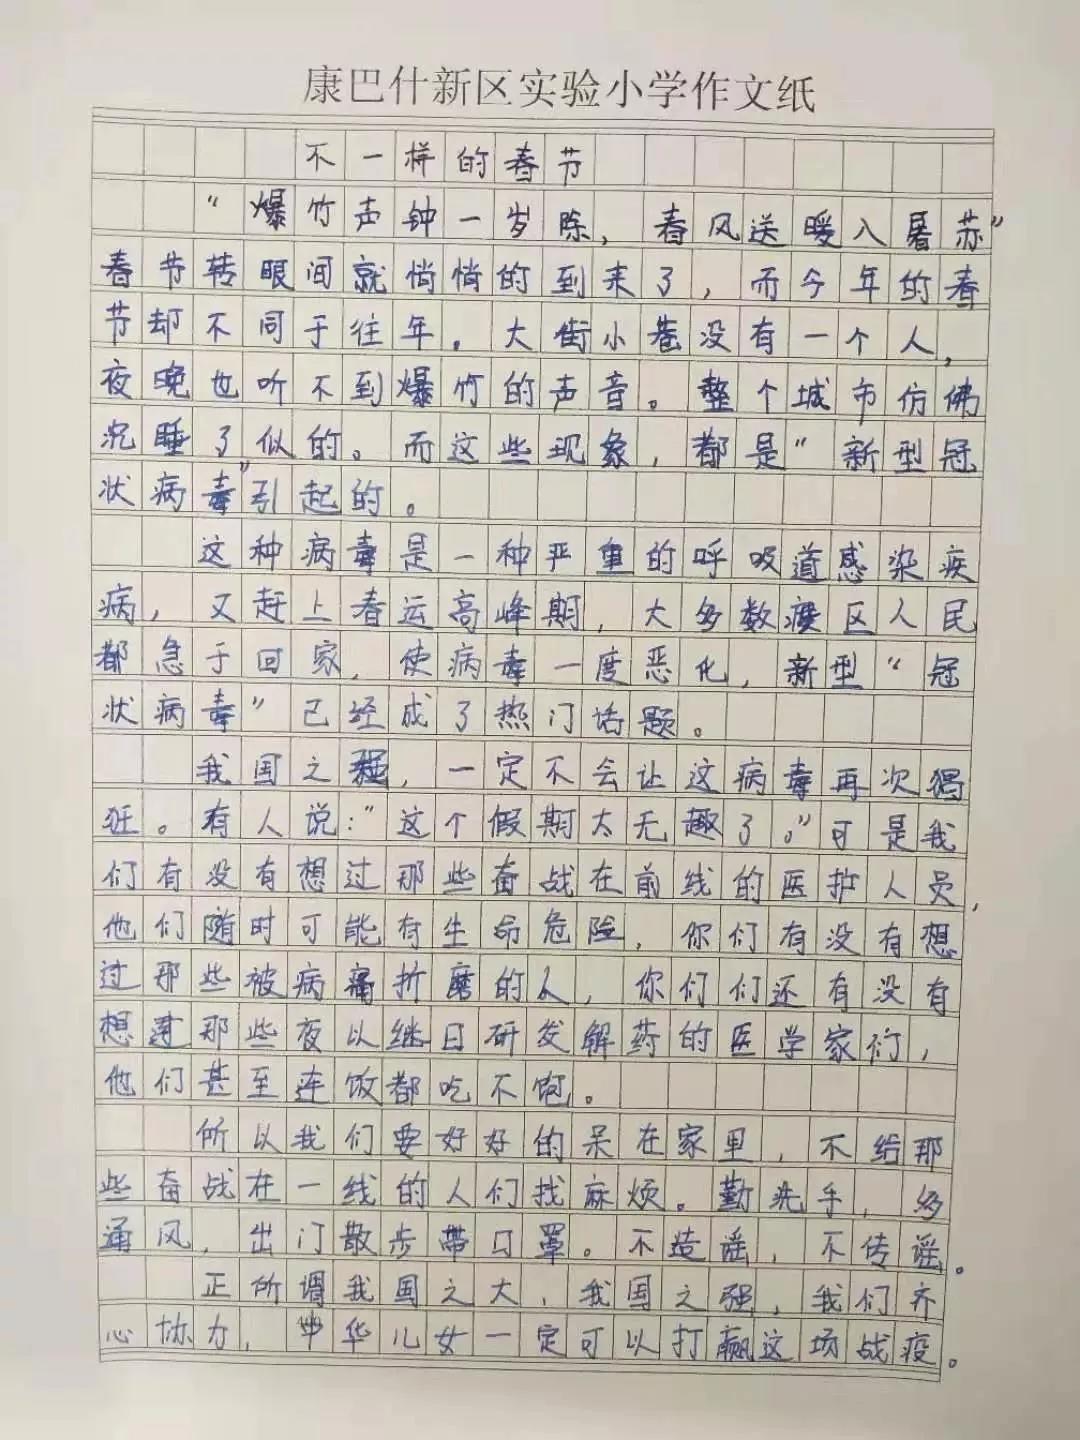 康巴什新区实验小学作文纸
不一样的春节
“爆竹声钟一岁除，春风送暖入屠苏”
春节转眼间就悄悄的到来了，而今年的春
节却不同于往年。大街小巷没有一个人，
夜晚也听不到爆竹的声音。整个城市仿佛
沉睡了似的。而这些现象，都是“新型冠
状病毒”引起的。
这种病毒是一种严重的呼吸道感染疾
病，又赶上春运高峰期，大多数疫区人民
都急于回家，使病毒一度恶化，新型“冠
状病毒”已经成了热门话题。
我国之强，一定不会让这病毒再次猖
狂。有人说：“这个假期太无趣了。”可是我
们有没有想过那些奋战在前线的医护人员，
他们随时可能有生命危险，你们有没有想
过那些被病痛折磨的人，你们们还有没有
想过那些夜以继日研发解药的医学家们，
他们甚至连饭都吃不饱。
所以我们要好好的呆在家里，不给那
些奋战在一线的人们找麻烦。勤洗手，多
通风，出门散步带口罩。不造谣，不传谣。
正所谓我国之大，我国之强，我们齐
心协力，中华儿女一定可以打赢这场战疫。